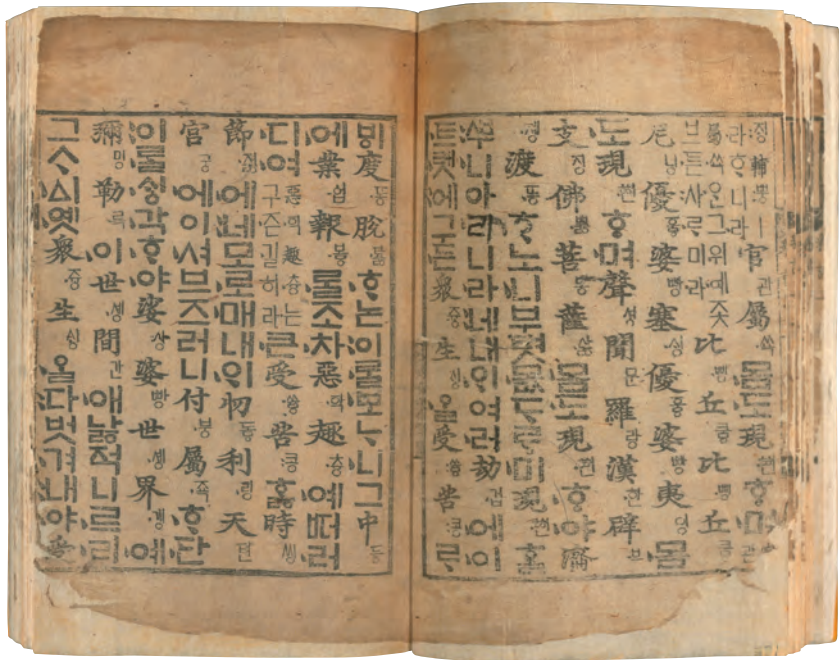 졍輔뽕ㅣ라ᄒᆞ니라官관屬쑉몸도現ᅘᅧᆫᄒᆞ며官관
屬쑉ᄋᆞᆫ그위예좃브튼사ᄅᆞ미라比삥丘쿻比삥丘쿻
尼닝優ᅙᅮᇢ婆빵塞ᄉᆡᆨ優ᅙᅮᇢ婆빵夷잉몸
도現ᅘᅧᆫᄒᆞ며聲셩聞문羅랑漢한辟벽
支징佛뿛菩뽕薩삻몸도現ᅘᅧᆫᄒᆞ야濟
졩渡똥ᄒᆞ노니부텻몸ᄯᆞᄅᆞ미現ᅘᅧᆫ홀
ᄲᅮ니아니라네내ᄋᆡ여러劫겁에이
트렛에구든衆즁生ᄉᆡᆼᄋᆞᆯ受쓩苦콩ᄅᆞ
ᄫᅵ度똥脫ᄠᅪᇙᄒᆞ논이ᄅᆞᆯ보ᄂᆞ니그中듕
에業업報보ᇢᄅᆞᆯ조차惡학趣츙예ᄠᅥ러
디여惡학趣츙는구즌길히라큰受쓩苦콩ᄒᆞᇙ時씽
節져ᇙ에네모로매내ᄋᆡ忉도ᇢ利링天텬
宮궁에이셔브즈러니付붕屬죡ᄒᆞ단
이ᄅᆞᆯᄉᆡᆼ각ᄒᆞ야娑상婆빵世솅界갱예
彌밍勒륵이世솅間간애낧저기니르리
그ᄉᆞᅀᅵ옛衆즁生ᄉᆡᆼᄋᆞᆯ다벗겨내야